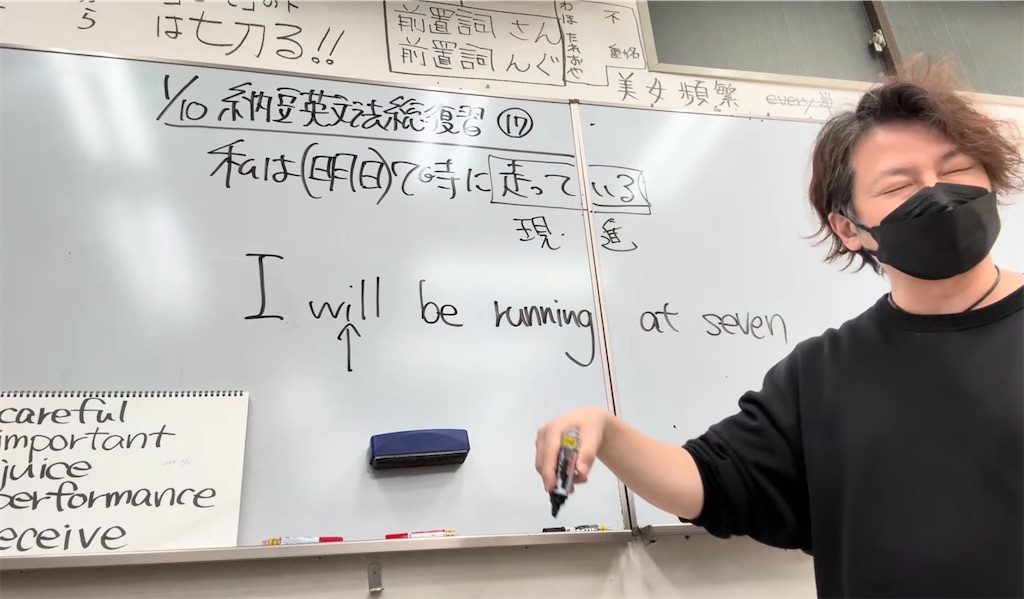 は七刀る!!
前置詞 さん
前置詞 んぐ
美女 頻繁 every
1/10 納豆英文法総復習 ⑰
私は(明日)7時に走っている
現 進
I will be running at seven
↑
careful
important
juice
performance
eceive